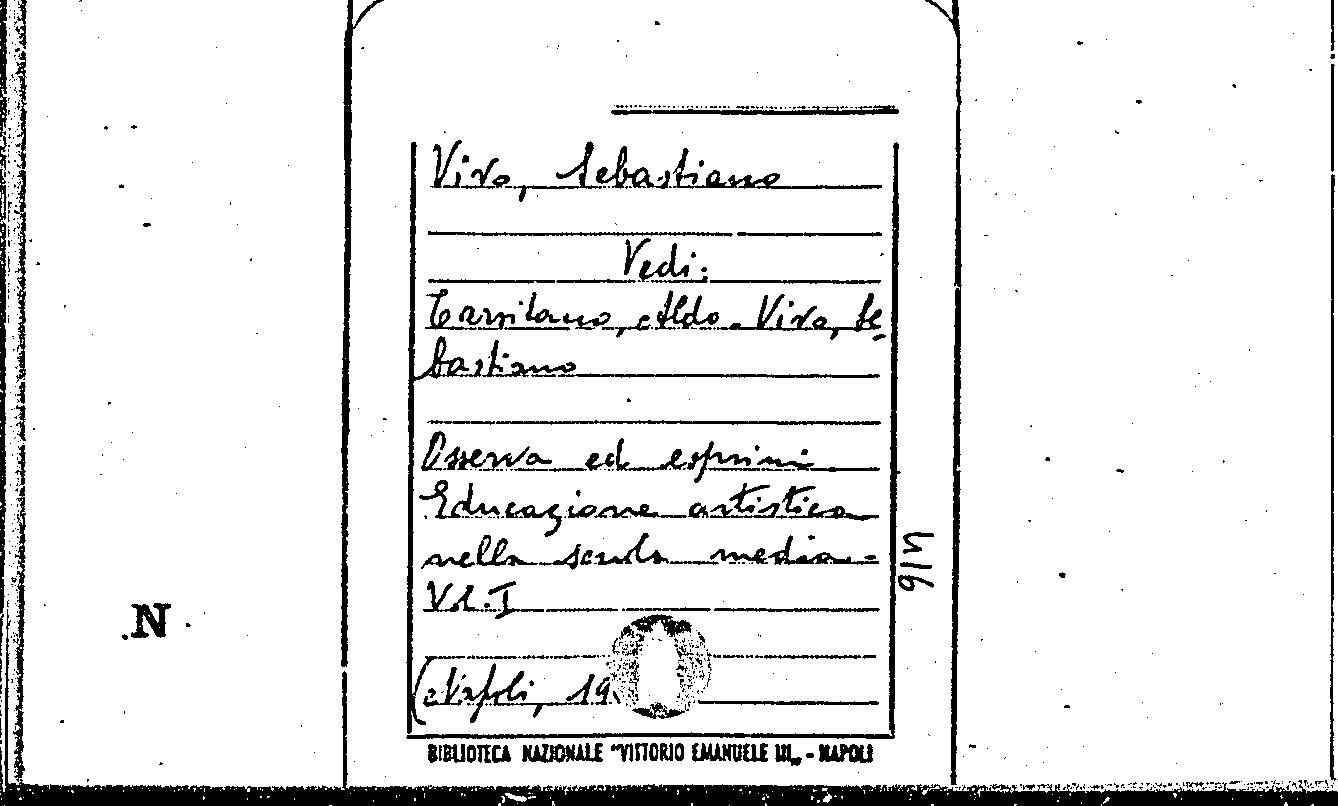 Vivo, Sebastiano
Vedi:
Tarsitano, Aldo - Vivo, Se-
bastiano
Osserva ed esprimi
Educazione artistica
nella scuola media -
Vol. I
(Napoli, 19
N/6
.N
BIBLIOTECA NAZIONALE "VITTORIO EMANUELE III„ - NAPOLI